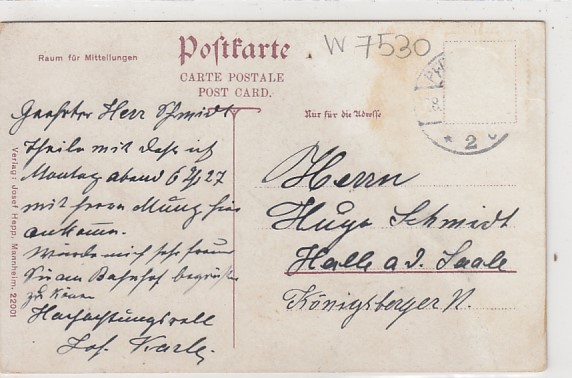 Postkarte
CARTE POSTALE
POST CARD.
Raum für Mitteilungen
Nur für die Adresse
W 7530
* 2
Geehrter Herr Schmidt
Theile mit daß ich
Montag abend 6 Uhr 27
mit Herrn Munz hier
ankomme.
Würde mich sehr freuen
Sie am Bahnhof begrüßen
zu können
Hochachtungsvoll
Jos. Karle
Herrn
Hugo Schmidt
Halle a. d. Saale
Königsberger
Verlag: Josef Hepp, Mannheim. 22001